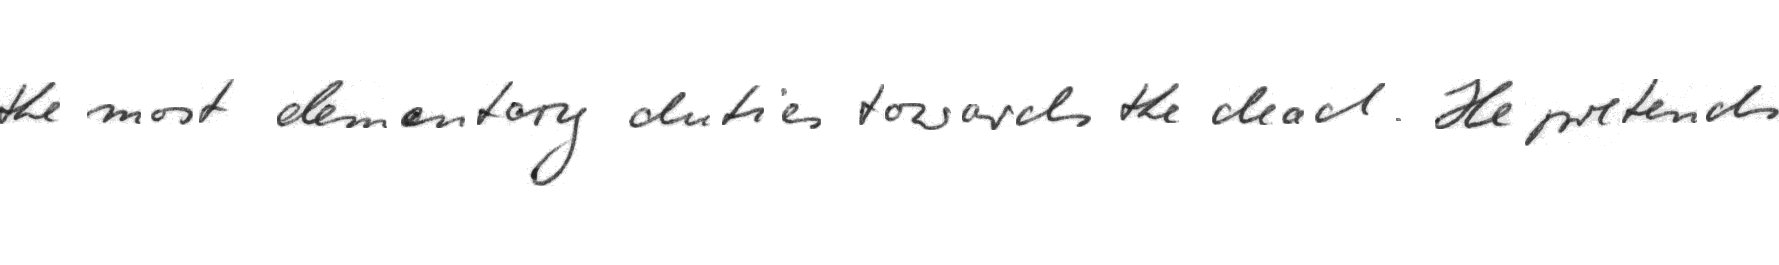 the most elementary duties towards the dead. He pretends